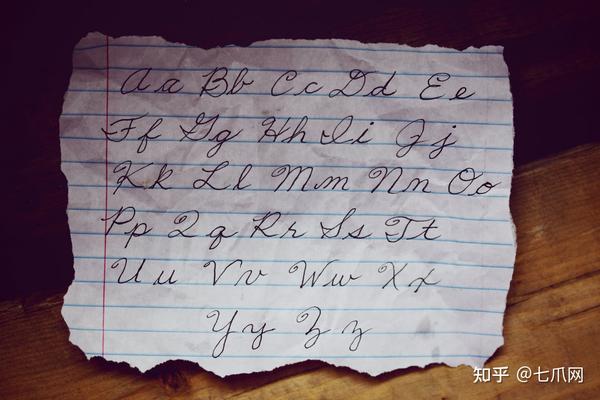 Aa Bb Cc Dd Ee
Ff Gg Hh Ii Jj
Kk Ll Mm Nn Oo
Pp Qq Rr Ss Tt
Uu Vv Ww Xx
Yy Zz
知乎 @七爪网